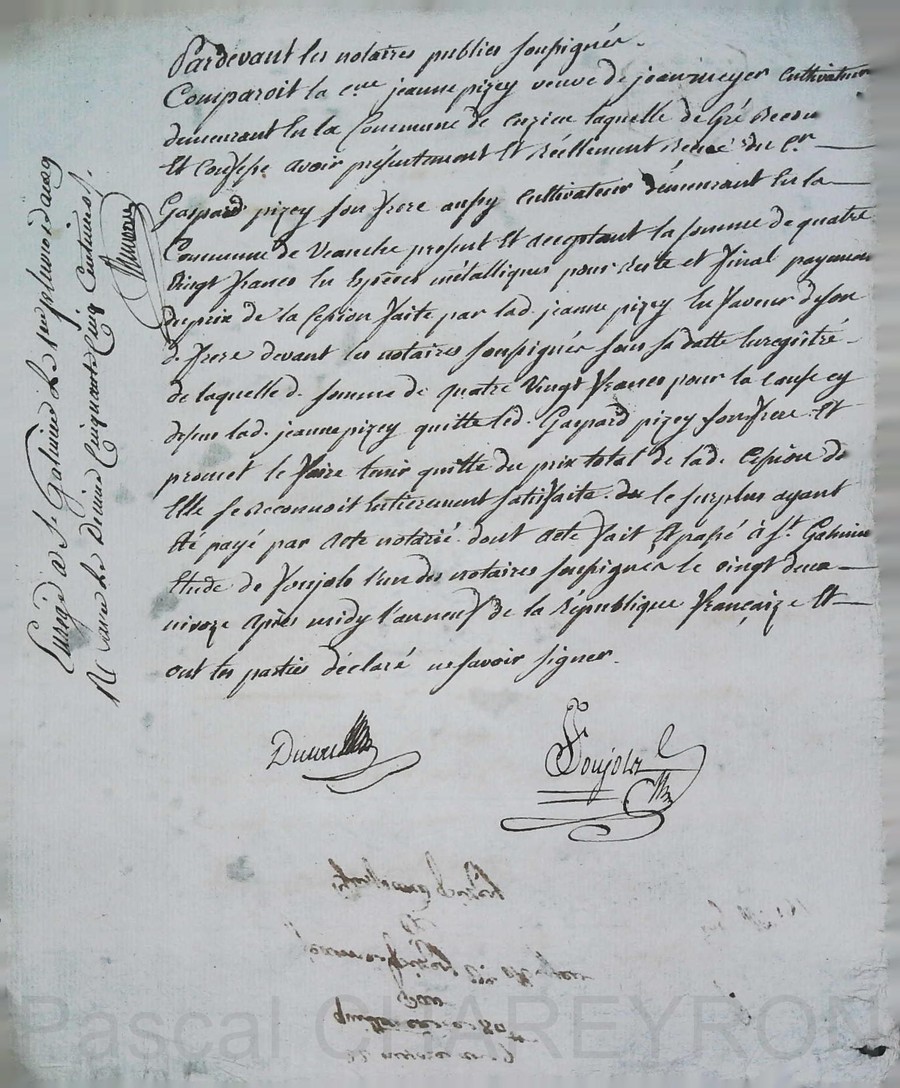 Pardevant les notaires publics soussignés
Comparoit la c.ne jeanne pizey veuve de jean meyer cultivateur
demeurant en la Commune de Curieu laquelle de Gré Reconu
Et Confesse avoir présentement Et Réellement Receu du C.en
Gaspard pizey son frere aussy Cultivateur demeurant En la
Commune de Veauche présent Et acceptant la somme de quatre
Vingt francs En Espèces métalliques pour Reste et final payement
du prix de la Cession faite par lad. jeanne pizey En faveur desond
d. frere devant les notaires soussignés sous sa datte Enregistré
de laquelle d. somme de quatre Vingt francs pour la cause cy
desus lad. jeanne pizey quitte led. Gaspard pizey son frere Et
promet le faire tenir quitte du prix total de lad. Cession de
Elle se Reconnoit Entierement satisfaite. du le surplus ayant
Eté payé par acte notarié. dont acte fait Et passé à S.t Galmier
Etude de Ponjols l'un des notaires soussignés le vingt deux
nivoze après midy l'an neuf de la République françaize Et
ont les parties déclaré ne savoir signer.
Ponjols
Enreg.é à S.t Galmier le pluviose an 9
Reçu Cinquante Cinq Centimes
Pascal CHAREYRON